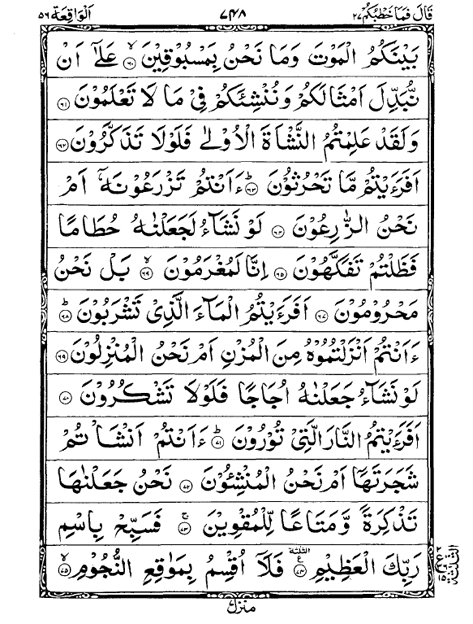 قَالَ فَمَا خَطْبُكُمْ ٢٧ ٧٤٨ اَلْوَاقِعَة ٥٦
بَيْنَكُمُ الْمَوْتَ وَمَا نَحْنُ بِمَسْبُوْقِيْنَ ۙ‏﴿۶۰﴾ عَلٰٓى اَنْ
نُّبَدِّلَ اَمْثَالَكُمْ وَنُنْشِئَكُمْ فِىْ مَا لَا تَعْلَمُوْنَ ﴿۶۱﴾
وَلَقَدْ عَلِمْتُمُ النَّشْاَةَ الْاُوْلٰى فَلَوْلَا تَذَكَّرُوْنَ ﴿۶۲﴾
اَفَرَءَيْتُمْ مَّا تَحْرُثُوْنَ ؕ﴿۶۳﴾ ءَاَنْتُمْ تَزْرَعُوْنَهٗۤ اَمْ
نَحْنُ الزّٰرِعُوْنَ ﴿۶۴﴾ لَوْ نَشَآءُ لَجَعَلْنٰهُ حُطَامًا
فَظَلْتُمْ تَفَكَّهُوْنَ ﴿۶۵﴾ اِنَّا لَمُغْرَمُوْنَ ۙ﴿۶۶﴾ بَلْ نَحْنُ
مَحْرُوْمُوْنَ ﴿۶۷﴾ اَفَرَءَيْتُمُ الْمَآءَ الَّذِىْ تَشْرَبُوْنَ ؕ﴿۶۸﴾
ءَاَنْتُمْ اَنْزَلْتُمُوْهُ مِنَ الْمُزْنِ اَمْ نَحْنُ الْمُنْزِلُوْنَ ﴿۶۹﴾
لَوْ نَشَآءُ جَعَلْنٰهُ اُجَاجًا فَلَوْلَا تَشْكُرُوْنَ ﴿۷۰﴾
اَفَرَءَيْتُمُ النَّارَ الَّتِىْ تُوْرُوْنَ ؕ﴿۷۱﴾ ءَاَنْتُمْ اَنْشَاْتُمْ
شَجَرَتَهَاۤ اَمْ نَحْنُ الْمُنْشِئُوْنَ ﴿۷۲﴾ نَحْنُ جَعَلْنٰهَا
تَذْكِرَةً وَّمَتَاعًا لِّلْمُقْوِيْنَ ۚ﴿۷۳﴾ فَسَبِّحْ بِاسْمِ
رَبِّكَ الْعَظِيْمِ ﴿۷۴﴾ فَلَاۤ اُقْسِمُ بِمَوٰقِعِ النُّجُوْمِ ۙ﴿۷۵﴾
منزل